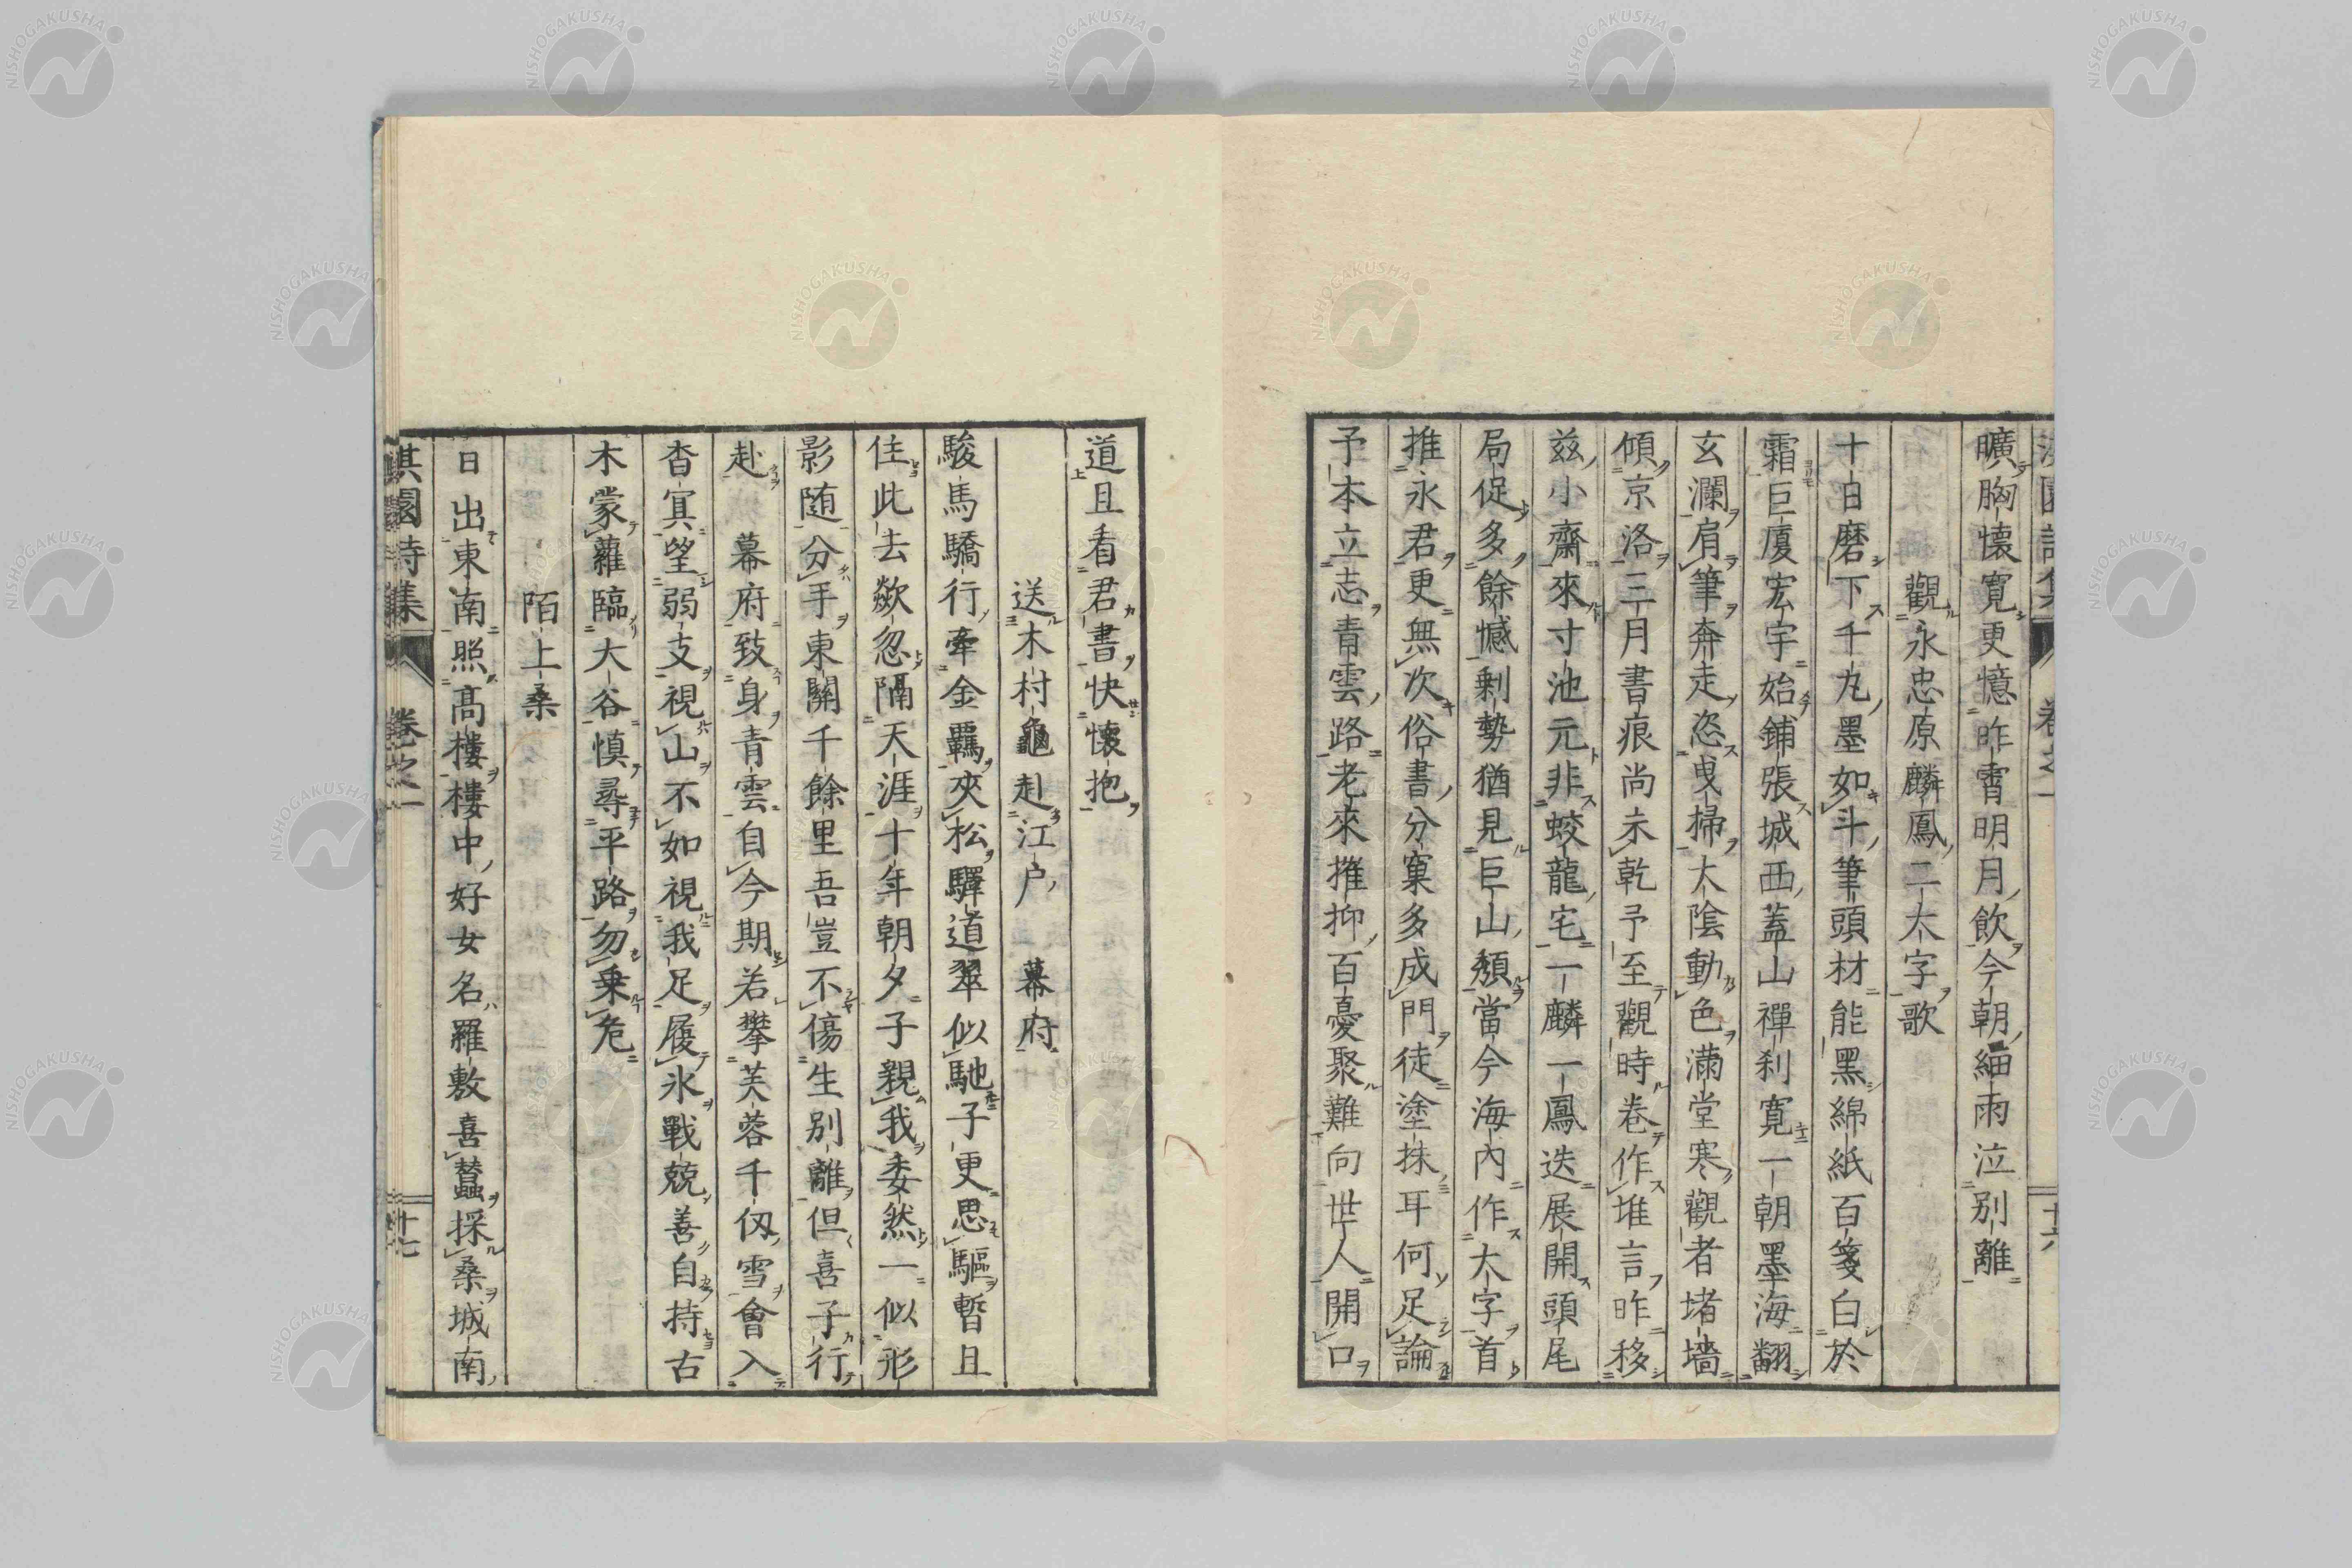 曠胸懷寛更憶昨宵明月飲今朝細雨泣別離
觀永忠原麟鳳二大字歌
十日磨下千丸墨如斗筆頭材能黑綿紙百箋白於
霜巨廈宏宇始鋪張城西蓋山禪刹寛一朝墨海翻
玄瀾肩筆奔走恣曳掃大陰動色滿堂寒觀者堵墻
傾京洛三月書痕尚未乾予至觀時卷作堆言昨移
茲小齋來寸池元非蛟龍宅一麟一鳳迭展開頭尾
局促多餘憾剰勢猶見巨山頽當今海內作大字首
推永君更無次俗書分窠多成門徒塗抹耳何足論
予本立志青雲路老來摧抑百憂聚難向世人開口
道且看君書快懷抱
送木村龜赴江户幕府
駿馬驕行牽金覊夾松驛道翠似馳子更思驅暫且
住此去歘忽隔天涯十年朝夕子親我委然一似形
影随分手東關千餘里吾豈不傷生别離但喜子行
赴幕府致身青雲自今期若攀芙蓉千仭雪會入
杳冥望弱支視山不如視我足履氷戰兢善自持古
木蒙蘿臨大谷慎尋平路勿乗危
陌上桑
日出東南照高樓樓中好女名羅敷喜蠶採桑城南
淇園詩集
卷之一
十七
卷之一
十六
NISHOGAKUSHA